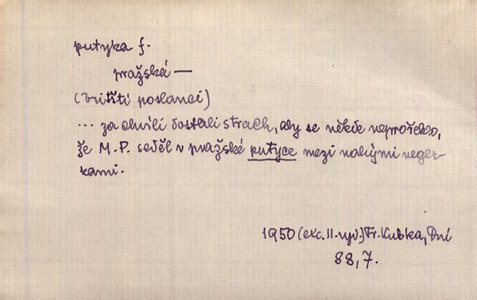 putyka f.
pražská —
(britští poslanci)
... za chvíli dostali strach, aby se někde neprořeklo,
že M.P. seděl v pražské putyce mezi nahými neger-
kami.
1950 (exc. II. vyd.) Fr. Kubka, Dní
88, 7.